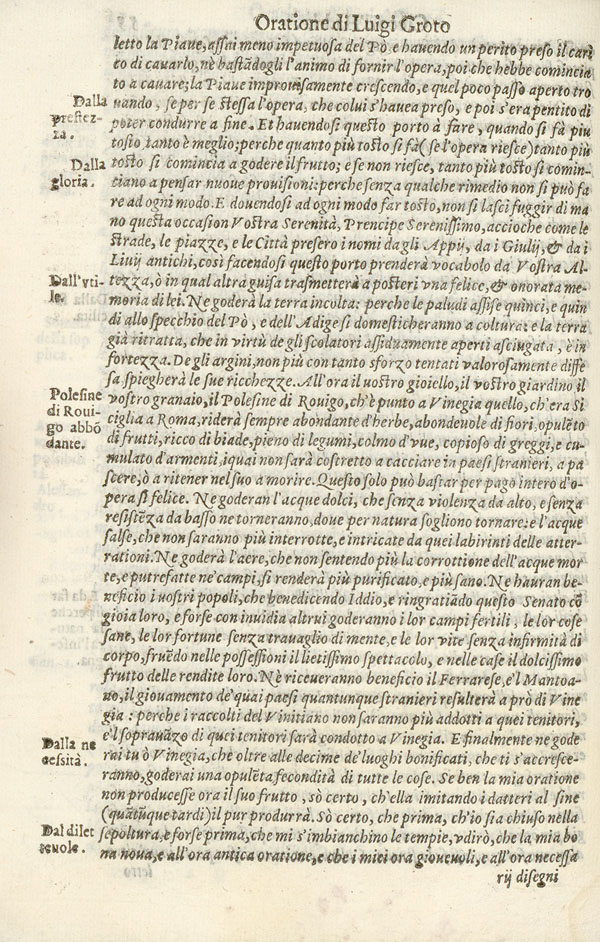 Oratione di Luigi Groto
letto la Piaue, assai meno impetuosa del Pò, e hauendo un perito preso il cari
co di cauarlo, nè bastādogli l'animo di fornir l'opera, poi che hebbe comincia
to a cauare; la Piaue improuisamente crescendo, e quel poco passo aperto tro
uando, fe per se stessa l'opera, che colui s'hauea preso, e poi s'era pentito di
Dalla
prestez-
za.
poter condurre a fine. Et hauendosi questo porto à fare, quando si fà piu
tosto, tanto è meglio; perche quanto più tosto si fà (se l'opera riesce) tanto più
tosto si comincia a godere il frutto; e se non riesce, tanto più tosto si comin-
Dalla
gloria.
ciano a pensar nuoue prouisioni: perche senza qualche rimedio non si può fa
re ad ogni modo. E douendosi ad ogni modo far tosto, non si lasci fuggir di ma
no questa occasion Vostra Serenità, Prencipe Serenissimo, accioche come le
strade, le piazze, e le Città presero i nomi dagli Appij, da i Giulij, & da i
Liuij antichi, così facendosi questo porto prenderà vocabolo da Vostra Al-
Dall'vti-
le.
tezza, ò in qual altra guisa trasmetterà a posteri vna felice, & onorata me-
moria di lei. Ne goderà la terra incolta: perche le paludi assise quinci, e quin
di allo specchio del Pò, e dell'Adige si domesticheranno a coltura: e la terra
già ritratta, che in virtù de gli scolatori assiduamente aperti asciugata, è in
fortezza. De gli argini, non più con tanto sforzo tentati valorosamente diffe
sa spiegherà le sue ricchezze. All'ora il uostro gioiello, il vostro giardino il
Polesine
di Roui-
go abbō
dante.
vostro granaio, il Polesine di Rouigo, ch'è punto a Vinegia quello, ch'era Si
ciglia a Roma, riderà sempre abondante d'herbe, abondeuole di fiori, opulēto
di frutti, ricco di biade, pieno di legumi, colmo d'vue, copioso di greggi, e cu-
mulato d'armenti, i quai non sarà costretto a cacciare in paesi stranieri, a pa
scere, ò a ritener nel suo a morire. Questo solo può bastar per pago intero d'o-
pera sì felice. Ne goderan l'acque dolci, che senza violenza da alto, e senza
resistēza da basso ne torneranno, doue per natura sogliono tornare: e l'acque
salse, che non saranno più interrotte, e intricate da quei labirinti delle atter-
rationi. Ne goderà l'aere, che non sentendo più la corrottione dell'acque mor
te, e putrefatte ne' campi, si renderà più purificato, e più sano. Ne hauran be-
neficio i uostri popoli, che benedicendo Iddio, e ringratiādo questo Senato cō
gioia loro, e forse con inuidia altrui goderanno i lor campi fertili, le lor cose
sane, le lor fortune senza trauaglio di mente, e le lor vite senza infirmità di
corpo, fruēdo nelle possessioni il lietissimo spettacolo, e nelle case il dolcissimo
frutto delle rendite loro. Nè riceueranno beneficio il Ferrarese, e'l Mantoa-
no, il giouamento de' quai paesi quantunque stranieri resulterà a prò di Vine
gia: perche i raccolti del Vinitiano non saranno più addotti a quei tenitori,
e'l soprauāzo di quei tenitori sarà condotto a Vinegia. E finalmente ne gode
Dalla ne
cessità.
rai tu ò Vinegia, che oltre alle decime de' luoghi bonificati, che ti s'accresce-
ranno, goderai una opulēta fecondità di tutte le cose. Se ben la mia oratione
non producesse ora il suo frutto, sò certo, ch'ella imitando i datteri al fine
(quātūque tardi) il pur produrrà. Sò certo, che prima, ch'io sia chiuso nella
Dal dilet
teuole.
sepoltura, e forse prima, che mi s'imbianchino le tempie, vdirò, che la mia bo
na noua, e all'ora antica oratione, e che i miei ora gioueuoli, e all'ora necessa
rij disegni